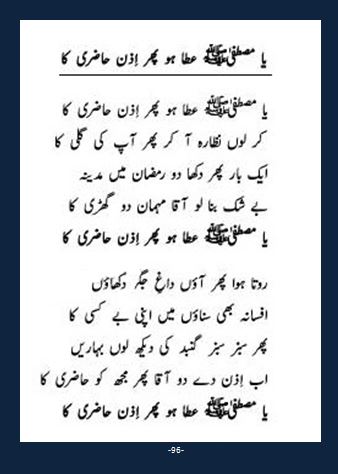 یا مصطفیٰ ﷺ عطا ہو پھر اِذن حاضری کا
یا مصطفیٰ ﷺ عطا ہو پھر اِذن حاضری کا
کر لوں نظارہ آ کر پھر آپ کی گلی کا
ایک بار پھر دکھا دو رمضان میں مدینہ
بے شک بنا لو آقا مہمان دو گھڑی کا
یا مصطفیٰ ﷺ عطا ہو پھر اِذن حاضری کا
روتا ہوا پھر آؤں داغِ جگر دکھاؤں
افسانہ بھی سناؤں میں اپنی بے کسی کا
پھر سبز سبز گنبد کی دیکھ لوں بہاریں
اب اِذن دے دو آقا پھر مجھ کو حاضری کا
یا مصطفیٰ ﷺ عطا ہو پھر اِذن حاضری کا
-96-